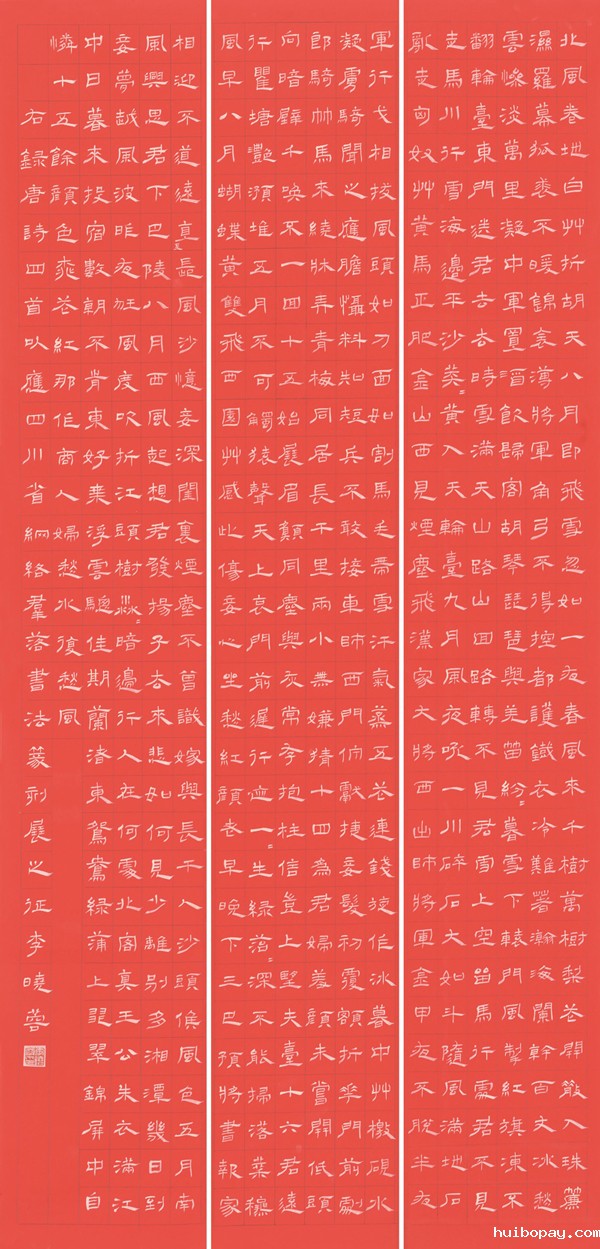 北風卷地白艸折胡天八月即飛雪忽如一夜春風來千樹萬樹梨花開散入珠簾
濕羅幕狐裘不暖錦衾薄將軍角弓不得控都護鐵衣冷難著瀚海闌幹百丈冰愁
雲慘淡萬里凝中軍置酒飲歸客胡琴琵琶與羌笛紛〻暮雪下轅門風掣紅旗凍不
翻輪臺東門送君去去時雪滿天山路山回路轉不見君雪上空留馬行處君不見
走馬川行雪海邊平沙莽〻黃入天輪臺九月風夜吼一川碎石大如斗隨風滿地石
亂走匈奴艸黃馬正肥金山西見煙塵飛漢家大將西出師將軍金甲夜不脫半夜
軍行戈相拔風頭如刀面如割馬毛帶雪汗氣蒸五花連錢旋作冰暮中艸檄硯水
凝虜騎聞之應膽懾料知短兵不敢接車師西門佇獻捷妾髮初覆額折華門前劇
郎騎竹馬來繞牀弄青梅同居長干里兩小無嫌猜十四為君婦羞顏未嘗開低頭
向暗壁千喚不一回十五始展眉願同塵與灰常存抱柱信豈上望夫臺十六君遠
行瞿塘灩澦堆五月不可觸猿聲天上哀門前遲行跡一〻生綠苔〻深不能掃落葉穐
風早八月蝴蝶黃雙飛西園艸感此傷妾心坐愁紅顏老早晚下三巴預將書報家
相迎不道遠直〻長風沙憶妾深閨裏煙塵不曾識嫁與長干人沙頭候風色五月南
風興思君下巴陵八月西風起想君發揚子去來悲如何見少離別多湘潭幾日到
妾夢越風波昨夜狂風度吹折江頭樹淼〻暗邊行人在何處北客真王公朱衣滿江
中日暮來投宿數朝不肯東好乘浮雲驄佳期蘭渚東鴛鴦綠蒲上翡翠錦屏中自
憐十五餘顏色桃花紅那作商人婦愁水復愁風
右錄唐詩四首以應四川省網絡羣落書法篆刻展之征李曉蓉
huibopay.com